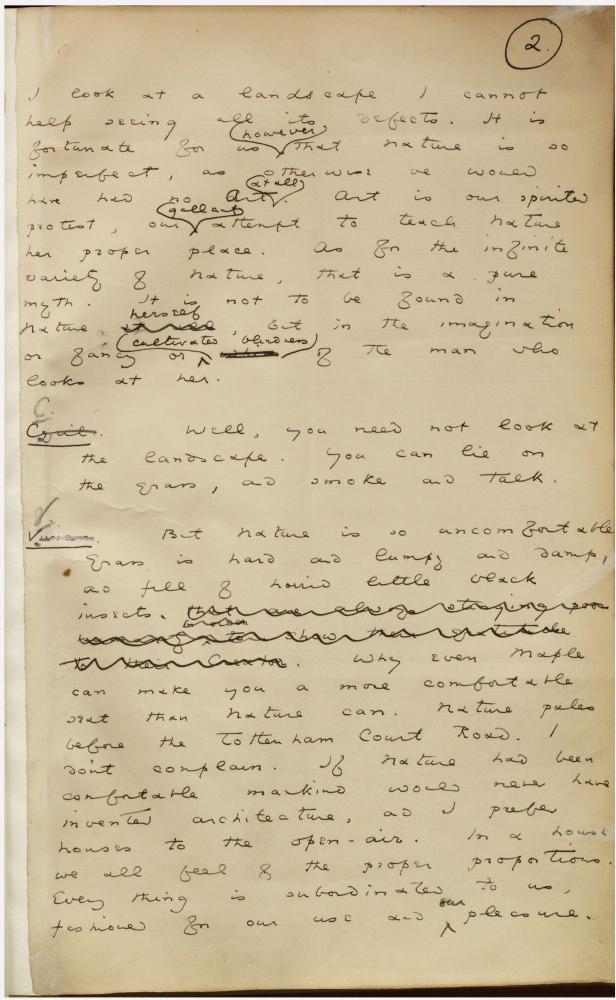 2.
I look at a landscape I cannot
help seeing all its defects. It is
fortunate for us, however, that nature is so
imperfect, as otherwise we would
have had no Art at all. Art is our spirited
protest, our gallant attempt to teach Nature
her proper place. As for the infinite
variety of Nature, that is a pure
myth. It is not to be found in
Nature herself, but in the imagination
or fancy or cultivated blindness of the man who
looks at her.
C.
Cyril. Well, you need not look at
the landscape. You can lie on
the grass, and smoke and talk.
V.
Vivian. But Nature is so uncomfortable
Grass is hard and lumpy and damp,
and full of horrid little black
insects.
to their Creator. Why even Maple
can make you a more comfortable
seat than Nature can. Nature pales
before the Tottenham Court Road. I
don't complain. If Nature had been
comfortable mankind would never have
invented architecture, and I prefer
houses to the open-air. In a house
we all feel of the proper proportions.
Every thing is subordinated to us,
fashioned for our use and our pleasure.